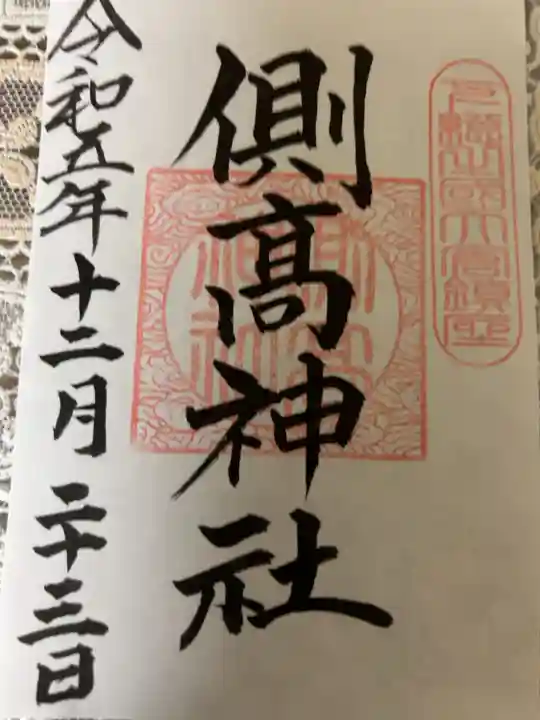 側髙神社
令和五年十二月二十三日